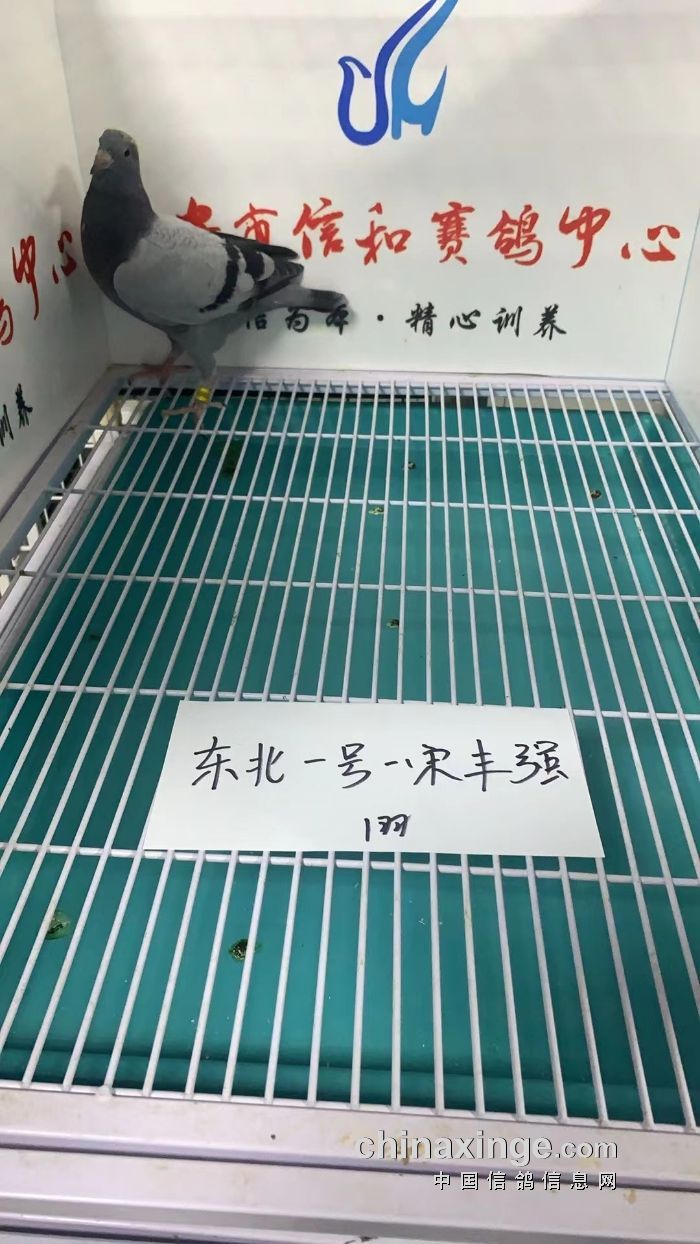 市信和赛鸽中心
为本·精心训养
中心
训养
东北一号-宋丰强
1羽
chinaxinge.com
中国信鸽信息网